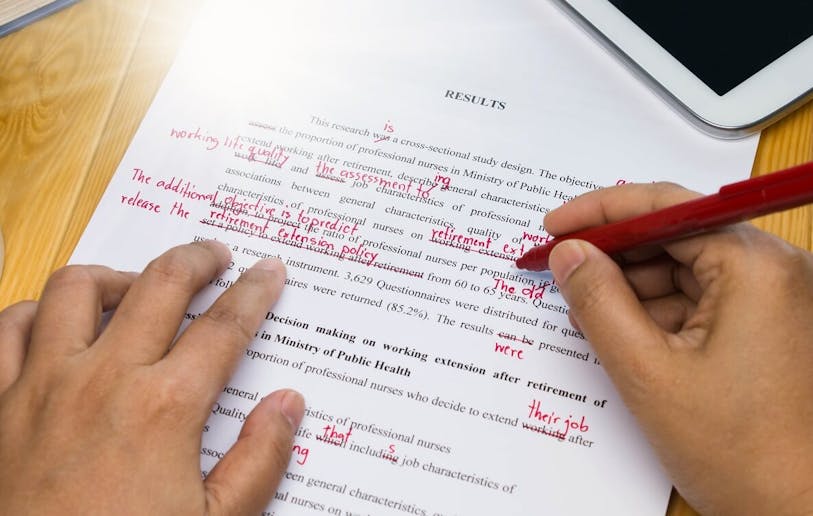 RESULTS
is
This research was a cross-sectional study design. The objective
working life quality
assess the proportion of professional nurses in Ministry of Public Health
extend working after retirement, describe general characteristics
ing
work life and assess job characteristics of professional
the assessment to
associations between general characteristics, quality of
The additional objective is to predict
characteristics of professional nurses on working extension
retirement ext
release the retirement extension policy
addition, to project the ratio of professional nurses per population
set a policy to extend working after retirement from 60 to 65 years.
The old
a research instrument. 3,629 Questionnaires were distributed for
2 questionnaires were returned (85.2%). The results can be presented
were
Decision making on working extension after retirement of
in Ministry of Public Health
proportion of professional nurses who decide to extend working after
their job
general characteristics of professional nurses
Quality life which including job characteristics of
that
s
ng
between general characteristics,
nurses on